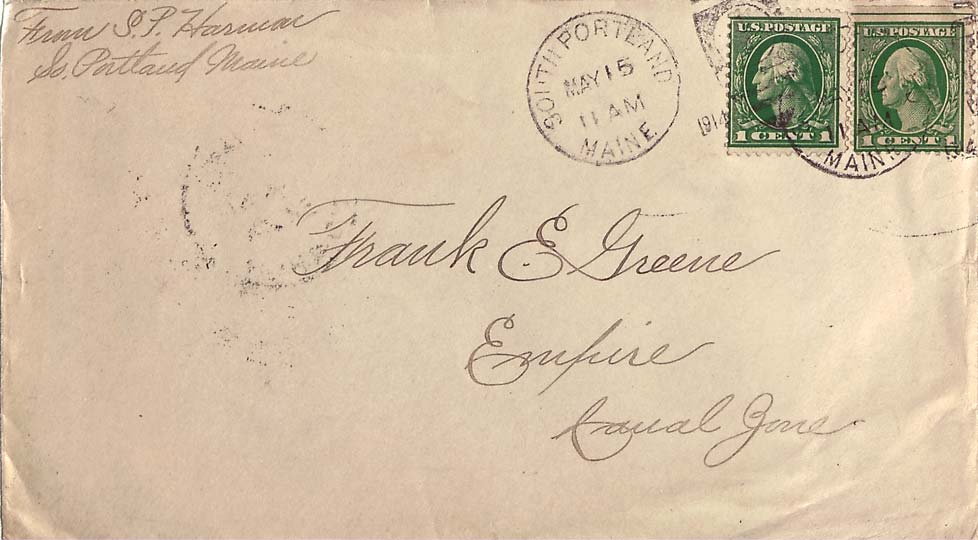 From S. P. Harmon
So. Portland Maine
SOUTH PORTLAND
MAY 15
11 AM
MAINE
1914
U.S. POSTAGE
1 CENT 1
U.S. POSTAGE
1 CENT 1
11 AM
MAINE
Frank E. Greene
Empire
Canal Zone